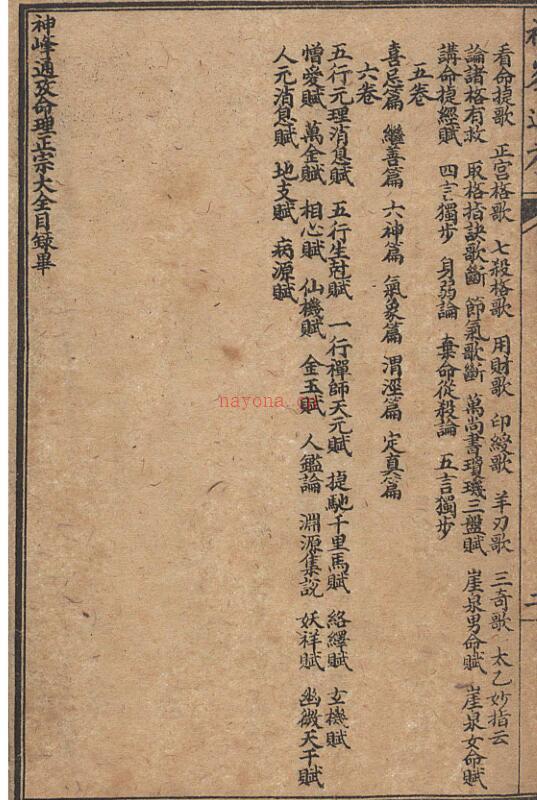 看命捷歌 正官格歌 七殺格歌 用財歌 印綬歌 羊刃歌 三奇歌 太乙妙指云
論諸格有救 取格指訣歌斷 節氣歌斷 萬尚書璇璣三盤賦 崖泉男命賦 崖泉女命賦
講命捷經賦 四言獨步 身弱論 棄命從殺論 五言獨步
五卷
喜忌篇 繼善篇 六神篇 氣象篇 渭涇篇 定真篇
六卷
五行元理消息賦 五行生尅賦 一行禪師天元賦 捷馳千里馬賦 絡繹賦 玄機賦
憎愛賦 萬金賦 相心賦 仙機賦 金玉賦 人鑑論 淵源集說 妖祥賦 幽微天干賦
人元消息賦 地支賦 病源賦
神峰通攷命理正宗大全目錄畢
nayona.cn